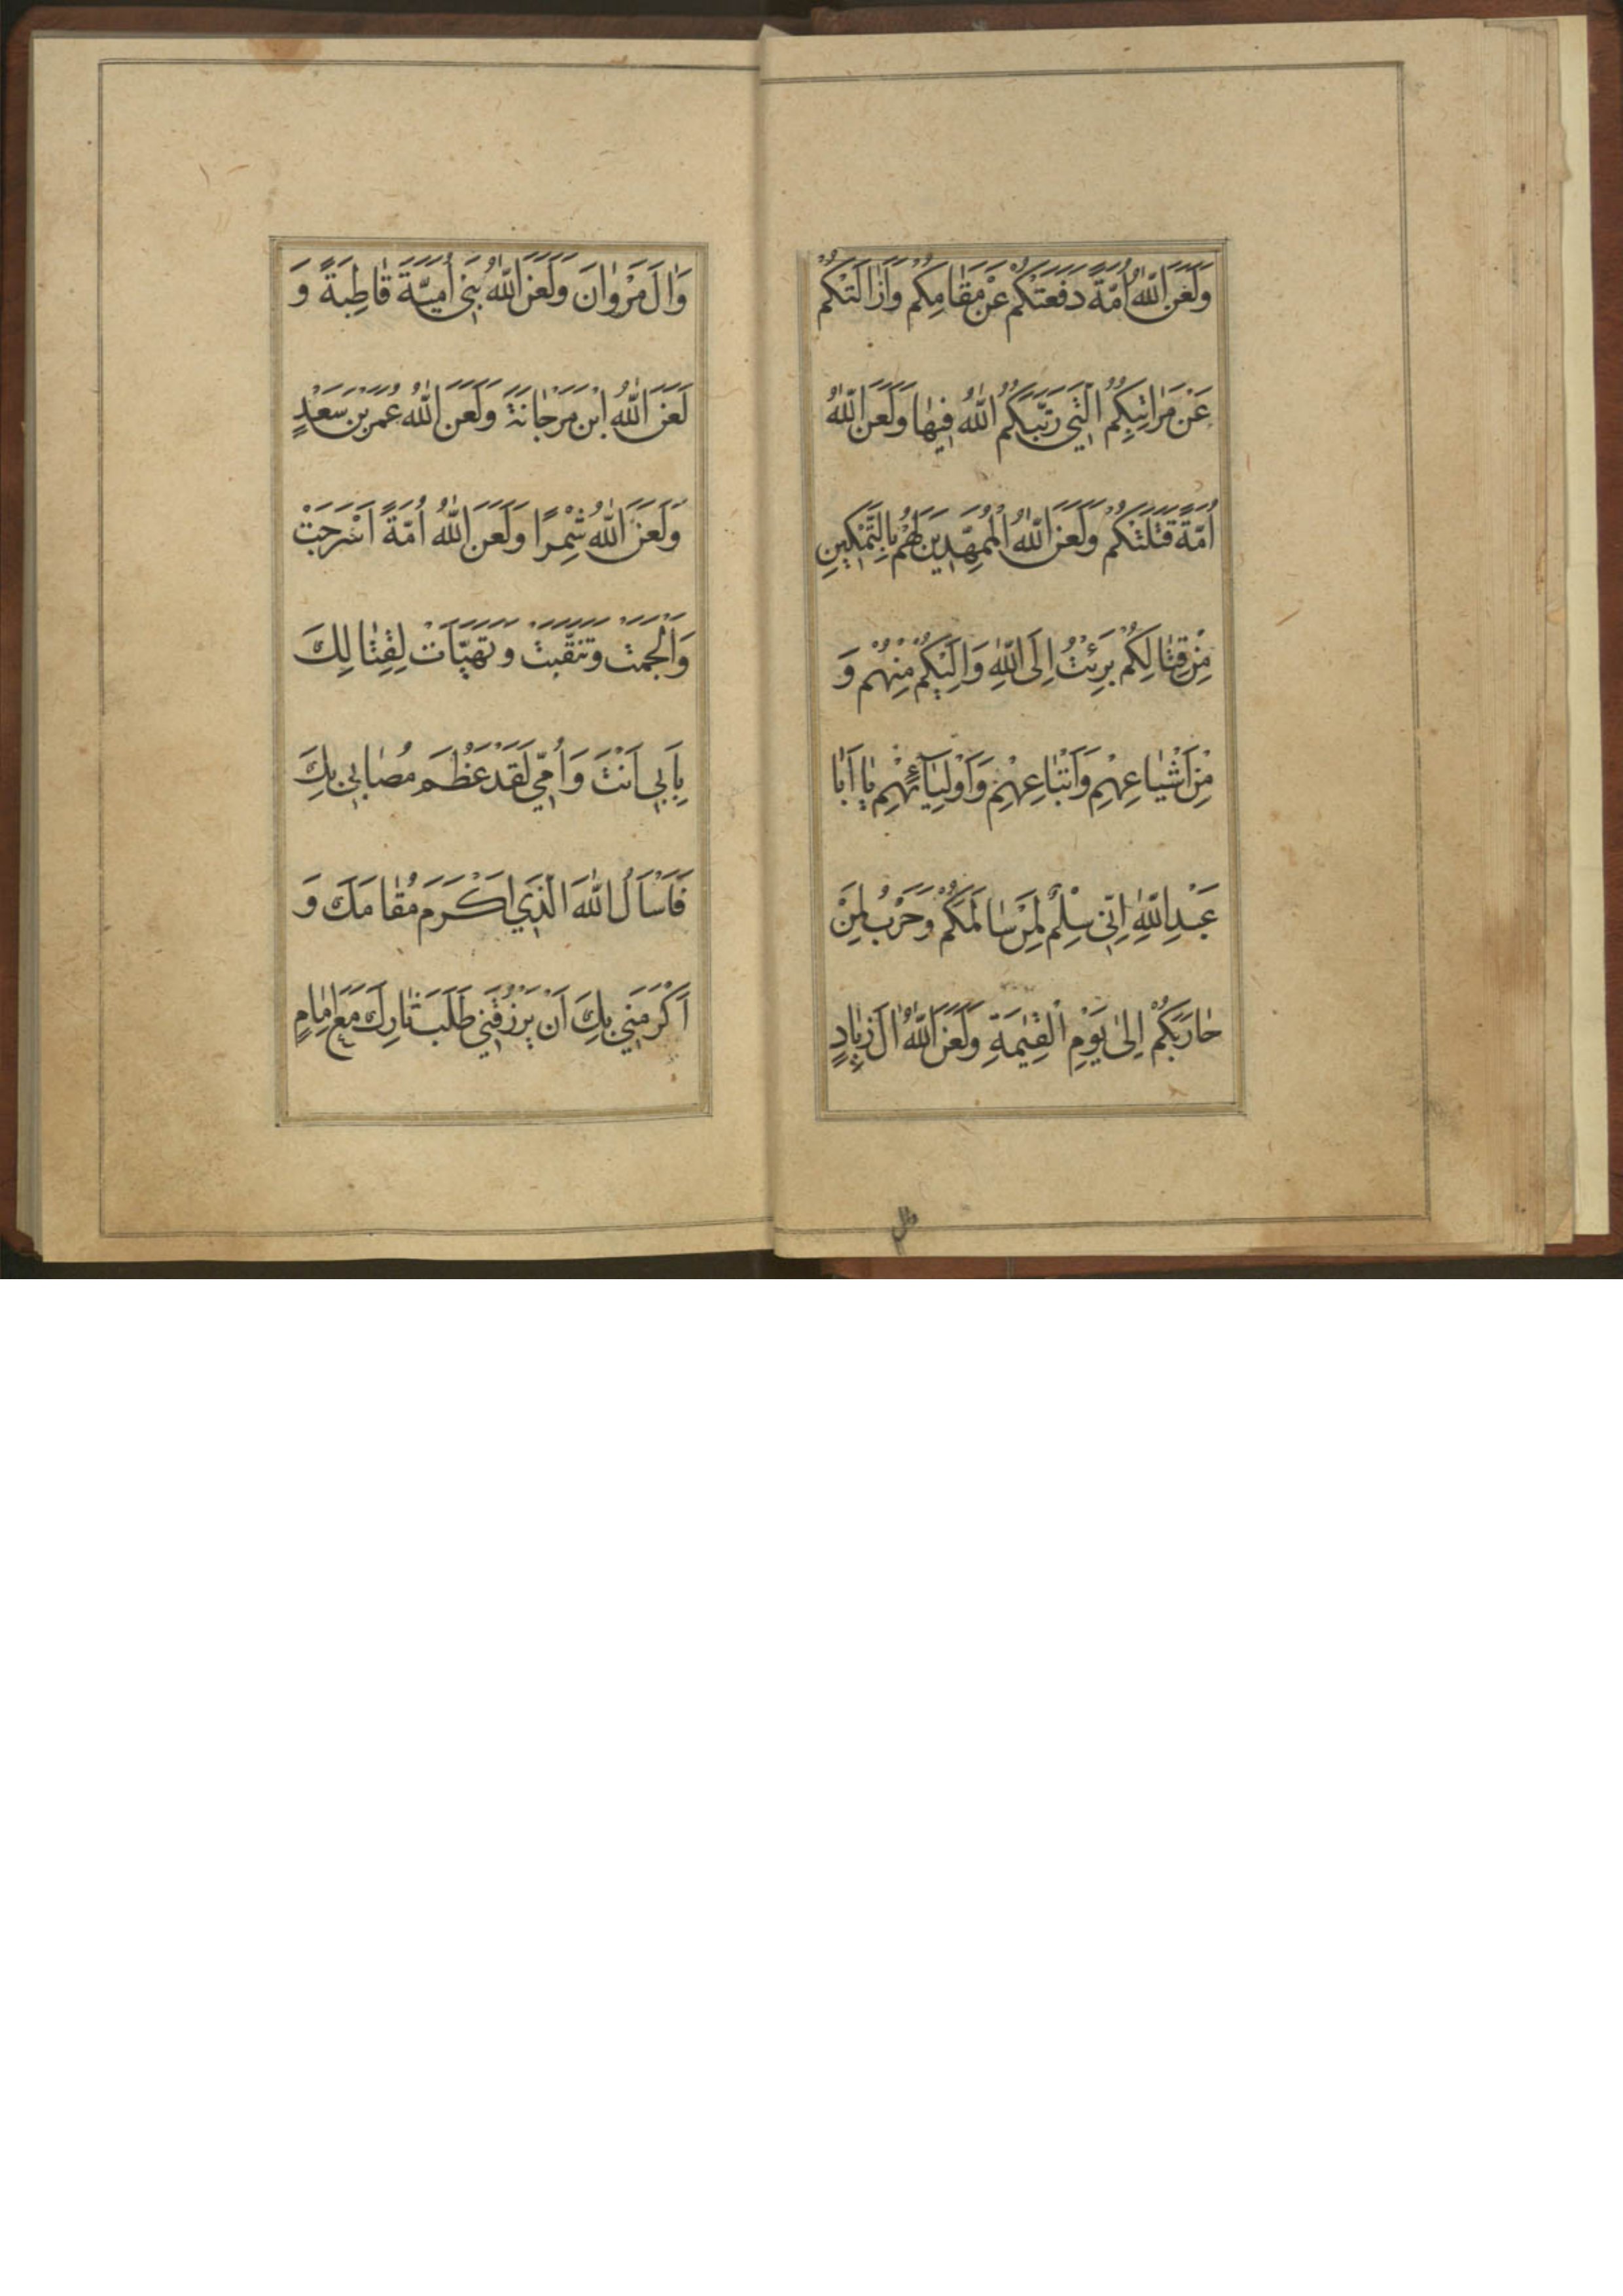 وَلَعَنَ اللّٰهُ اُمَّةً دَفَعَتْكُمْ عَنْ مَقٰامِكُمْ وَاَزٰالَتْكُمْ
عَنْ مَرٰاتِبِكُمُ الَّتٖي رَتَّبَكُمُ اللّٰهُ فٖيهٰا وَلَعَنَ اللّٰهُ
اُمَّةً قَتَلَتْكُمْ وَلَعَنَ اللّٰهُ الْمُمَهِّدٖينَ لَهُمْ بِالتَّمْكٖينِ
مِنْ قِتٰالِكُمْ بَرِئْتُ اِلَى اللّٰهِ وَاِلَيْكُمْ مِنْهُمْ وَ
مِنْ اَشْيٰاعِهِمْ وَاَتْبٰاعِهِمْ وَاَوْلِيٰٓائِهِمْ يٰا اَبٰا
عَبْدِ اللّٰهِ اِنّٖي سِلْمٌ لِمَنْ سٰالَمَكُمْ وَحَرْبٌ لِمَنْ
حٰارَبَكُمْ اِلىٰ يَوْمِ الْقِيٰمَةِ وَلَعَنَ اللّٰهُ اٰلَ زِيٰادٍ
وَاٰلَ مَرْوٰانَ وَلَعَنَ اللّٰهُ بَنٖي اُمَيَّةَ قٰاطِبَةً وَ
لَعَنَ اللّٰهُ ابْنَ مَرْجٰانَةَ وَلَعَنَ اللّٰهُ عُمَرَ بْنَ سَعْدٍ
وَلَعَنَ اللّٰهُ شِمْرًا وَلَعَنَ اللّٰهُ اُمَّةً اَسْرَجَتْ
وَاَلْجَمَتْ وَتَنَقَّبَتْ وَتَهَيَّاَتْ لِقِتٰالِكَ
بِاَبٖي اَنْتَ وَاُمّٖي لَقَدْ عَظُمَ مُصٰابٖي بِكَ
فَاَسْاَلُ اللّٰهَ الَّذٖي اَكْرَمَ مَقٰامَكَ وَ
اَكْرَمَنٖي بِكَ اَنْ يَرْزُقَنٖي طَلَبَ ثٰارِكَ مَعَ اِمٰامٍ